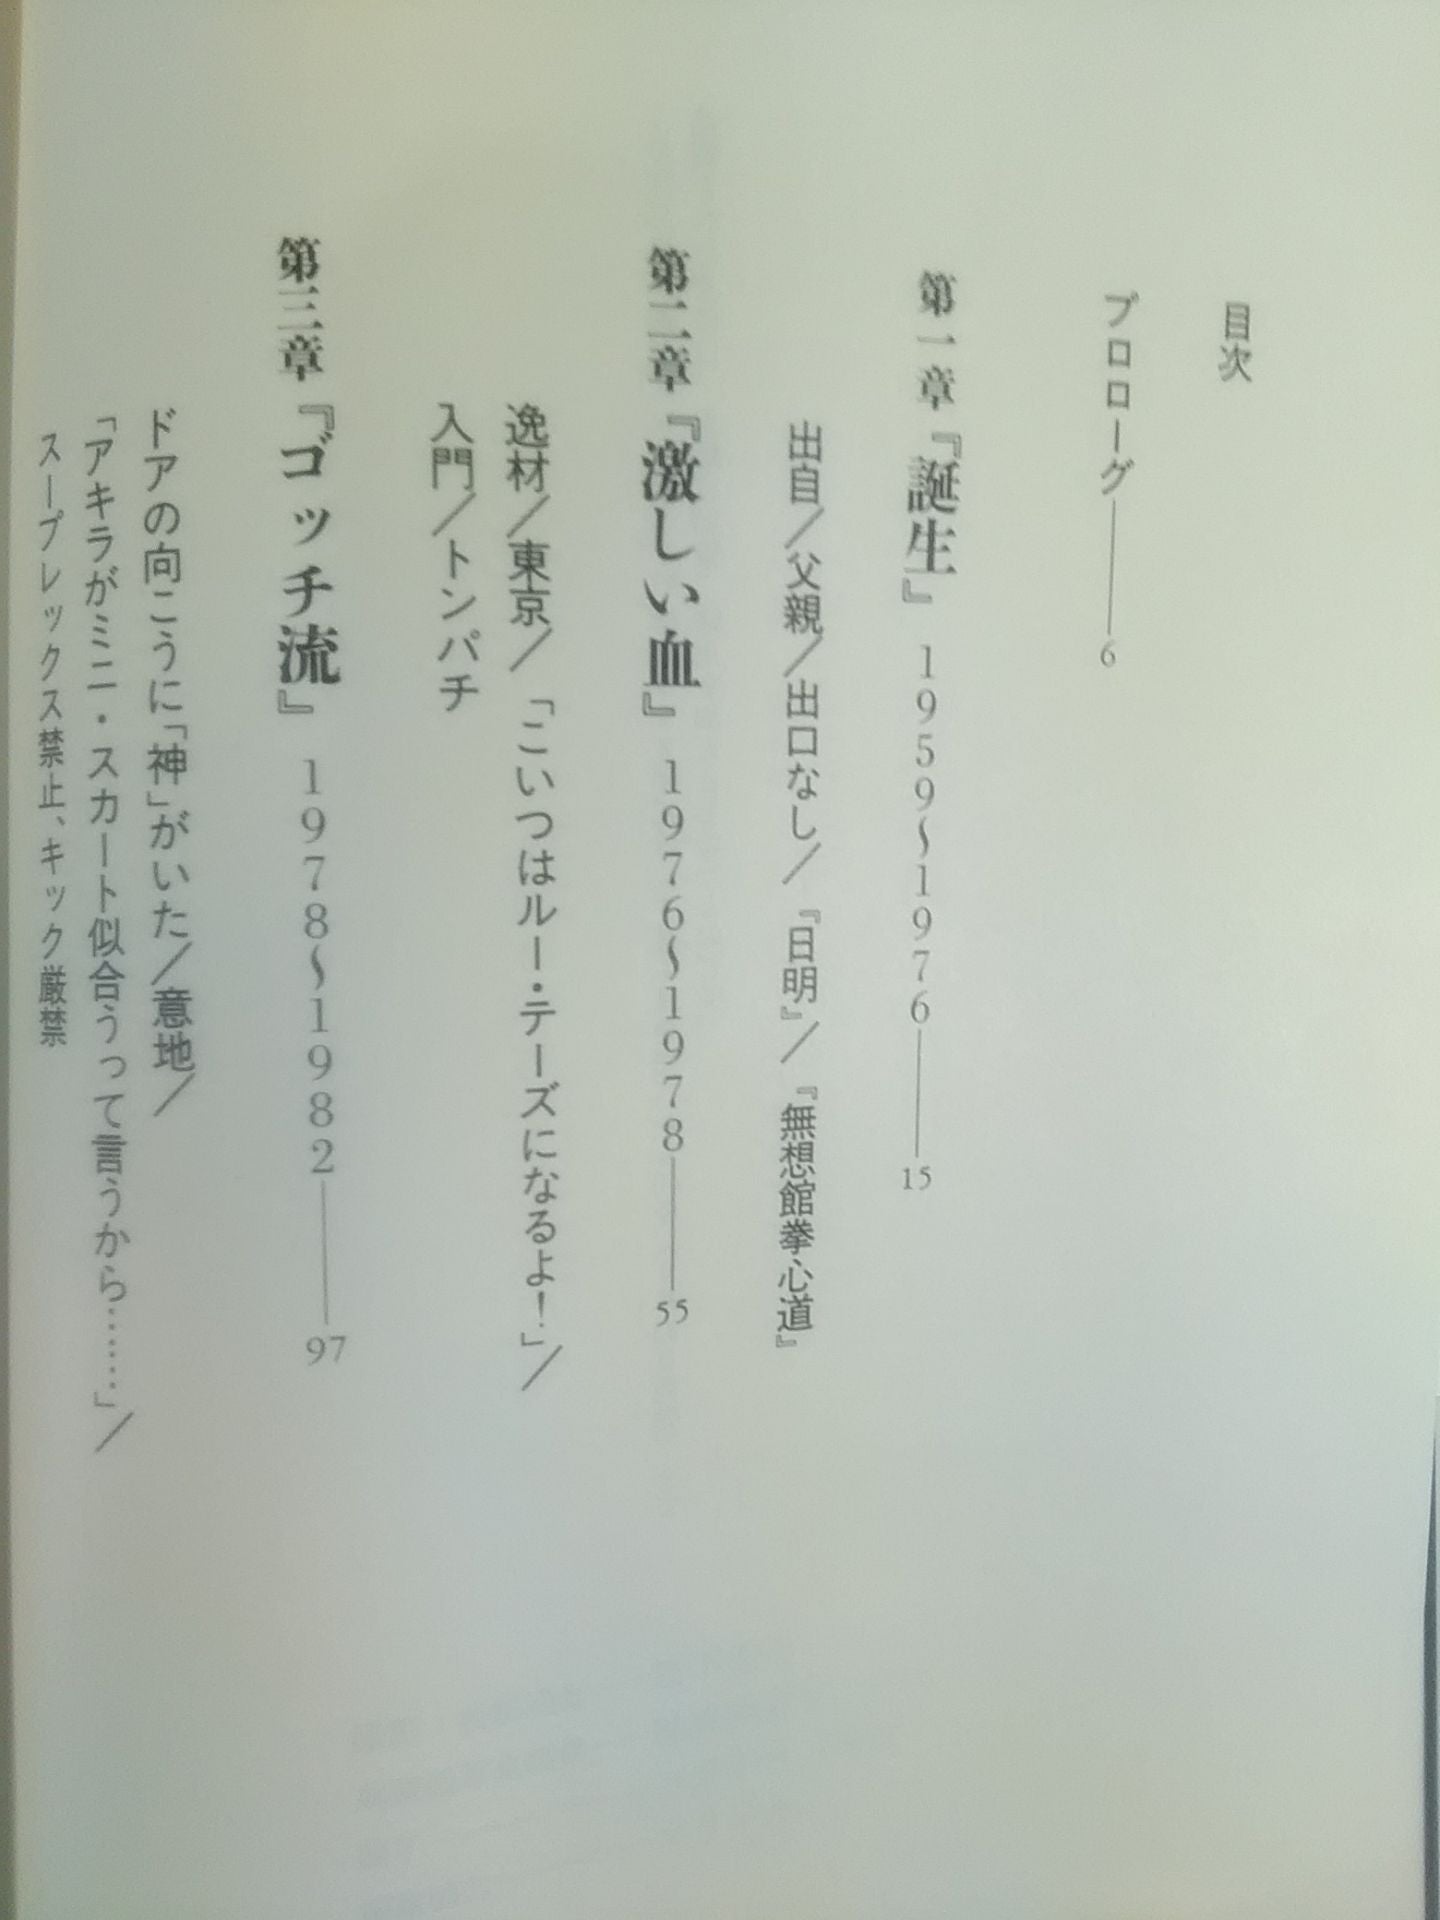 目次
プロローグ――6
第一章『誕生』 1959～1976――15
出自／父親／出口なし／『日明』／『無想館拳心道』
第二章『激しい血』 1976～1978――55
逸材／東京／「こいつはルー・テーズになるよ！」／
入門／トンパチ
第三章『ゴッチ流』 1978～1982――97
ドアの向こうに「神」がいた／意地／
「アキラがミニ・スカート似合うって言うから……」／
スープレックス禁止、キック厳禁